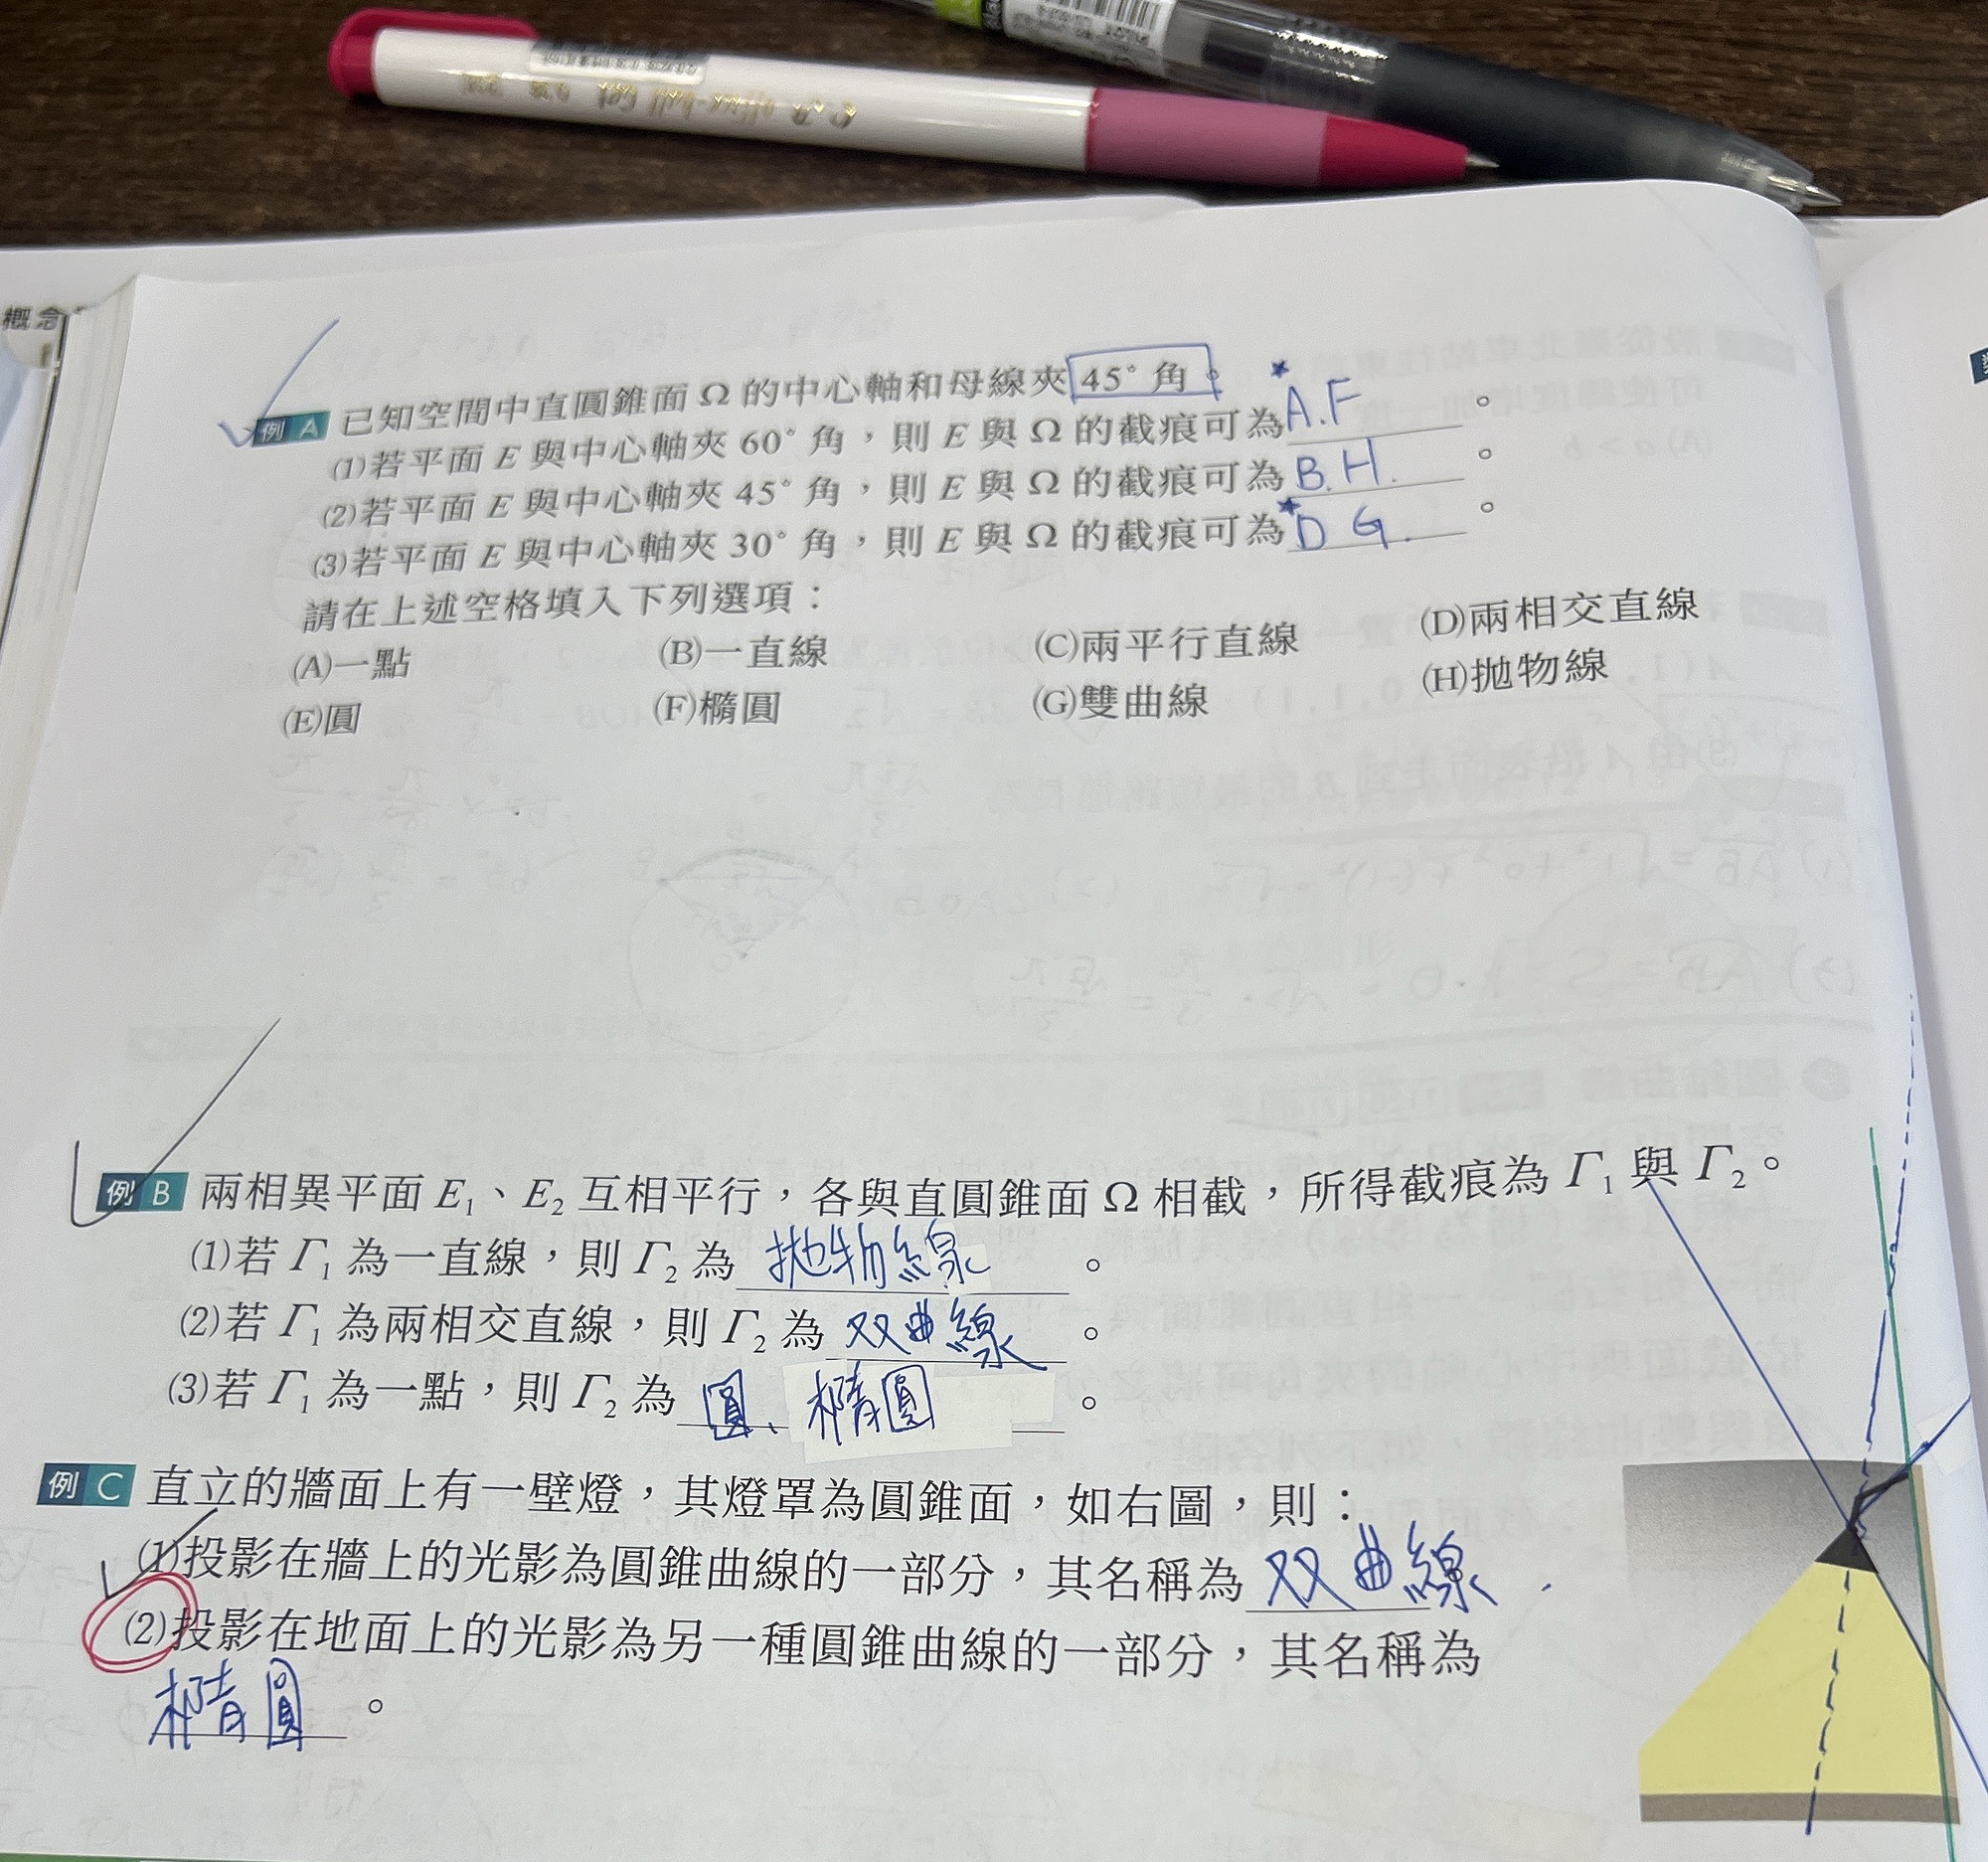 概念
例 A 已知空間中直圓錐面 Ω 的中心軸和母線夾 45° 角。
(1)若平面 E 與中心軸夾 60° 角，則 E 與 Ω 的截痕可為 A.F 。
(2)若平面 E 與中心軸夾 45° 角，則 E 與 Ω 的截痕可為 B.H. 。
(3)若平面 E 與中心軸夾 30° 角，則 E 與 Ω 的截痕可為 D G. 。
請在上述空格填入下列選項：
(A)一點 (B)一直線 (C)兩平行直線 (D)兩相交直線
(E)圓 (F)橢圓 (G)雙曲線 (H)拋物線
例 B 兩相異平面 E₁、E₂ 互相平行，各與直圓錐面 Ω 相截，所得截痕為 Γ₁ 與 Γ₂。
(1)若 Γ₁ 為一直線，則 Γ₂ 為 拋物線 。
(2)若 Γ₁ 為兩相交直線，則 Γ₂ 為 双曲線 。
(3)若 Γ₁ 為一點，則 Γ₂ 為 圓、橢圓 。
例 C 直立的牆面上有一壁燈，其燈罩為圓錐面，如右圖，則：
(1)投影在牆上的光影為圓錐曲線的一部分，其名稱為 双曲線 .
(2)投影在地面上的光影為另一種圓錐曲線的一部分，其名稱為
橢圓 。